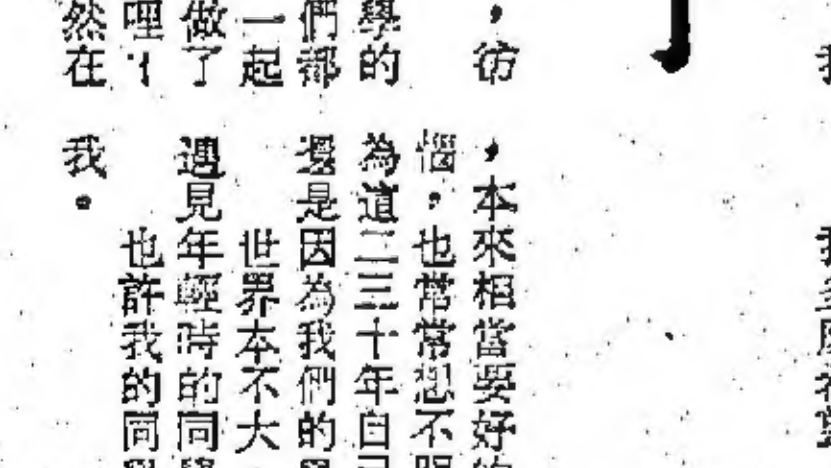 ，彷
學的
們都
一起
做了
哩！
然在
，本來相當要好
惱，也常常想不
為這二三十年自
還是因為我們的
世界本不大
遇見年輕時的同
也許我的同
我。